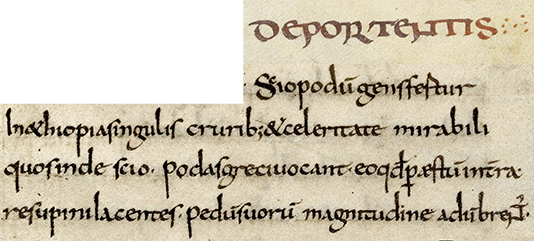 DEPORTENTIS
Sciopodū gensfertur
Inæthiopiasingulis crurib;&celeritate mirabili
quosinde scio·podasgreciuocant·eoqđpæstūinterra
resupiniIacentes·pedūsuorū magnitudine adūbrent᷑·